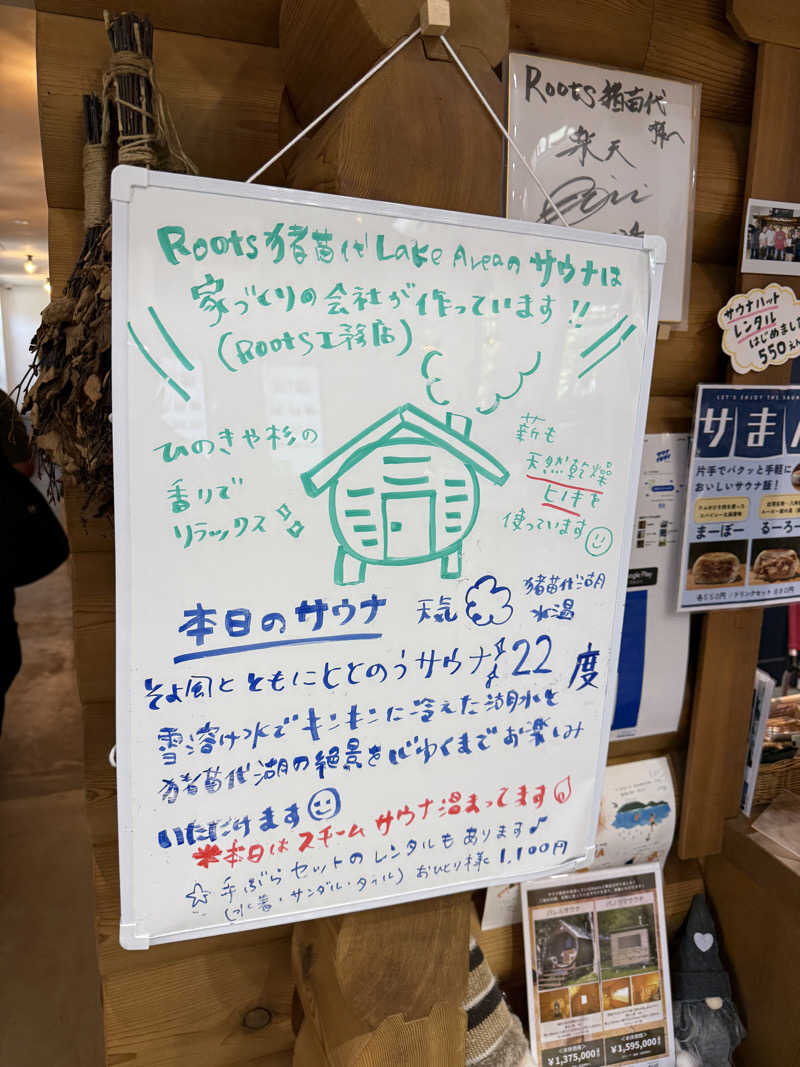 Roots猪苗代 Lake Areaの サウナは
家づくりの会社が作っています!!
(Roots工務店)
ひのきや杉の
香りで
リラックス
薪も
天然乾燥
ヒノキを
使っています
本日のサウナ
天気
猪苗代湖
水温
22度
そよ風とともにととのうサウナ
雪溶け水でキンキンに冷えた湖水と
猪苗代湖の絶景を心ゆくまでお楽しみ
いただけます
※本日はスチームサウナ温まってます
☆手ぶらセットのレンタルもあります♪
(水着・サンダル・タオル) おひとり様 1,100円
Roots猪苗代
様へ
楽天
サウナハット
レンタル
はじめました
550
LET'S ENJOY THE SAUN
サまん
片手でパクッと手軽に
おいしいサウナ飯!
まーぼー
るーろー
各550円/ドリンクセット
Google Play
バレルサウナ
パノラマサウナ
¥1,375,000
¥1,595,000